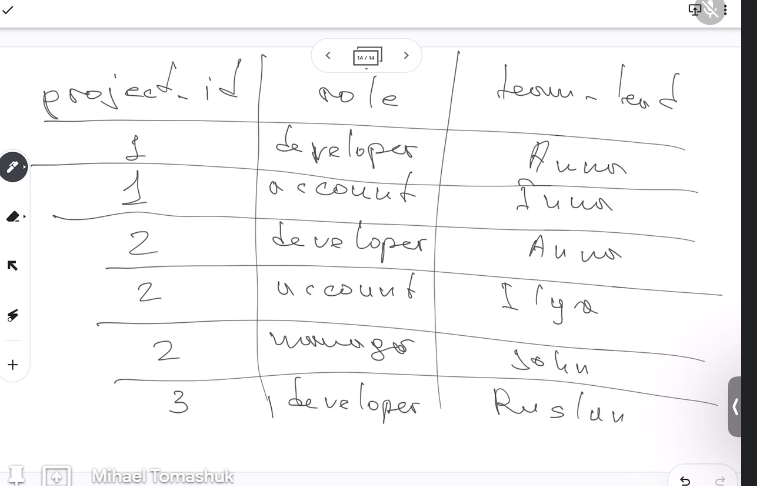 14 / 14
project_id role team-lead
1 developer Anna
1 account Inna
2 developer Anna
2 account Ilya
2 manager John
3 developer Ruslan
Mihael Tomashuk